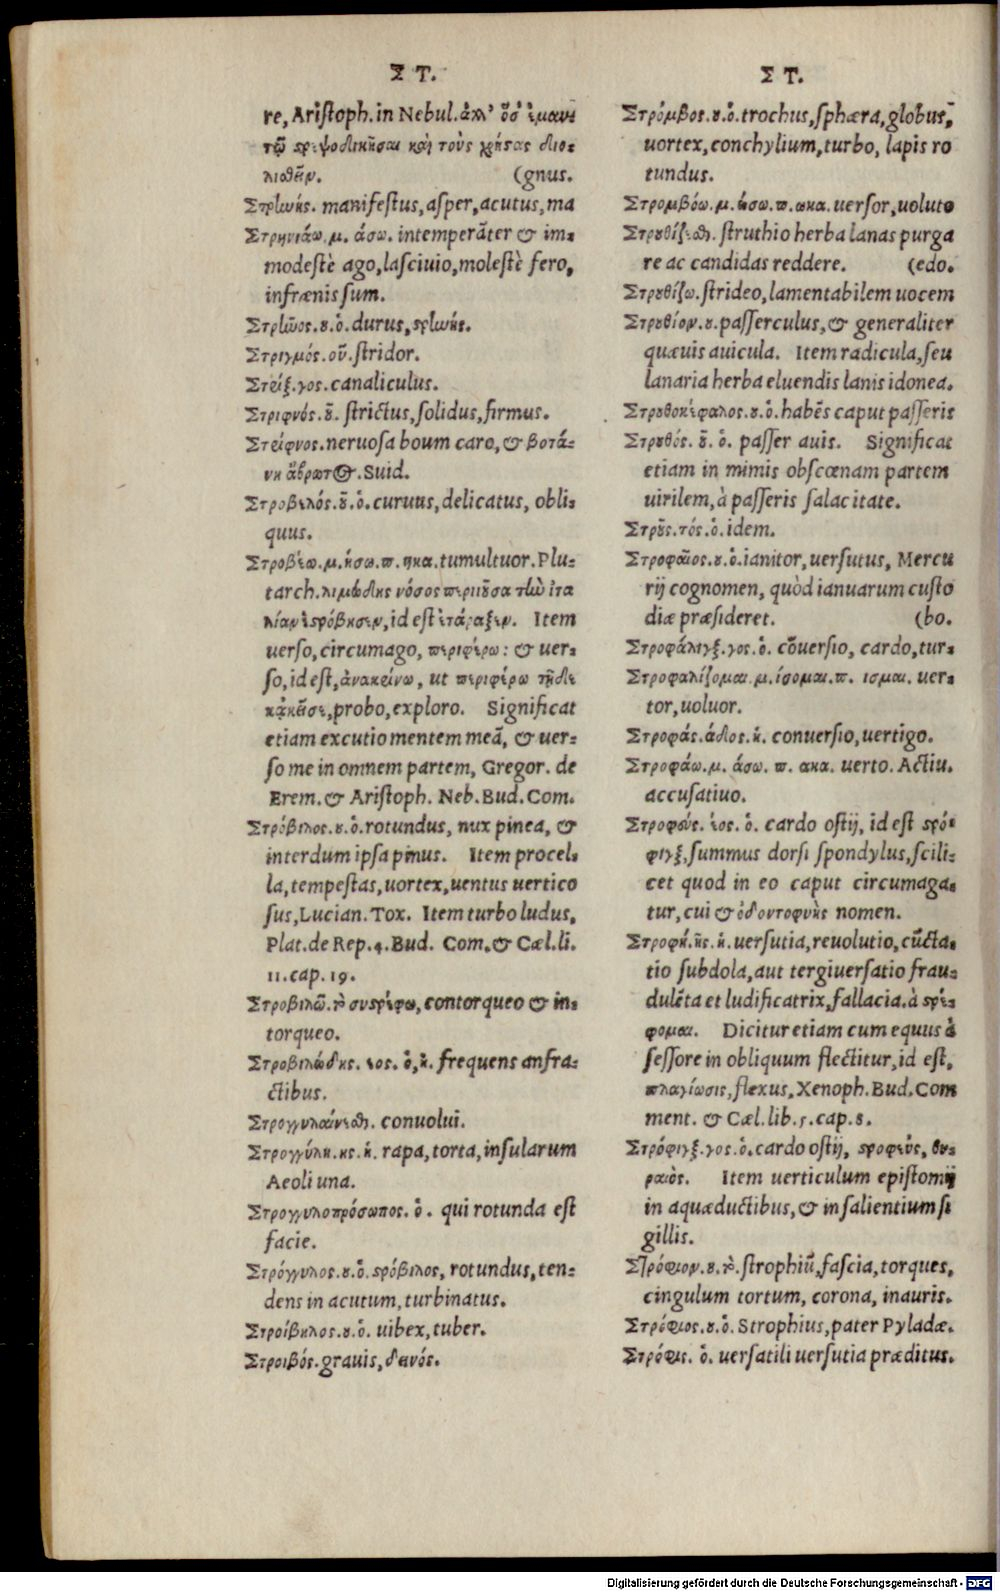 ΣΤ.
re, Ariſtoph. in Nebul. ἀλλ' ὅσ' ἐμαυ
τῷ στρεψοδικῆσαι καὶ τοὺς χρήστας διο-
λισθεῖν. (gnus.
Στρίωής. manifeſtus, aſper, acutus, ma
Στρηνιάω. μ. άσω. intemperāter & im-
modeſtè ago, laſciuio, moleſtè fero,
infrænis ſum.
Στρίωος. ου. ὁ. durus, στρίωής.
Στριγμός. οῦ. ſtridor.
Στρίξ. γος. canaliculus.
Στριφνός. οῦ. ſtrictus, ſolidus, firmus.
Στρίφνος. neruoſa boum caro, & βοτά-
νη ἄβρωτος. Suid.
Στροβιλός. οῦ. ὁ. curuus, delicatus, obli-
quus.
Στροβέω. μ. ήσω. π. ηκα. tumultuor. Plu-
tarch. λιμώδης νόσος περιιοῦσα τὴν ἰτα
λίαν ἐστρόβησεν, id eſt ἐτάραξεν. Item
uerſo, circumago, περιφέρω: & uer-
ſo, id eſt, ἀνακείνω, ut περιφέρω τῇδε
κἀκεῖσε, probo, exploro. Significat
etiam excutio mentem meā, & uer-
ſo me in omnem partem, Gregor. de
Erem. & Ariſtoph. Neb. Bud. Com.
Στρόβιλος. ου. ὁ. rotundus, nux pinea, &
interdum ipſa pinus. Item procel-
la, tempeſtas, uortex, uentus uertico
ſus, Lucian. Tox. Item turbo ludus,
Plat. de Rep. 4. Bud. Com. & Cæl. li.
11. cap. 19.
Στροβιλῶ. τὸ συστρέφω, contorqueo & in-
torqueo.
Στροβιλώδης. εος. ὁ, ἡ. frequens anfra-
ctibus.
Στρογγυλαίνεσθ. conuolui.
Στρογγύλη. ης. ἡ. rapa, torta, inſularum
Aeoli una.
Στρογγυλοπρόσωπος. ὁ. qui rotunda eſt
facie.
Στρόγγυλος. ου. ὁ. στρόβιλος, rotundus, ten-
dens in acutum, turbinatus.
Στροίβηλος. ου. ὁ. uibex, tuber.
Στροιβός. grauis, δεινός.
ΣΤ.
Στρόμβος. ου. ὁ. trochus, ſphæra, globus,
uortex, conchylium, turbo, lapis ro
tundus.
Στρομβόω. μ. ώσω. π. ωκα. uerſor, uoluto
Στρουθίζεσθ. ſtruthio herba lanas purga
re ac candidas reddere. (edo.
Στρουθίζω. ſtrideo, lamentabilem uocem
Στρουθίον. ου. paſſerculus, & generaliter
quæuis auicula. Item radicula, ſeu
lanaria herba eluendis lanis idonea.
Στρουθοκέφαλος. ου. ὁ. habēs caput paſſeris
Στρουθός. οῦ. ὁ. paſſer auis. Significat
etiam in mimis obſcœnam partem
uirilem, à paſſeris ſalacitate.
Στροῦς. τός. ὁ. idem.
Στροφαῖος. ου. ὁ. ianitor, uerſutus, Mercu
rij cognomen, quòd ianuarum cuſto
diæ præſideret. (bo.
Στροφάλιγξ. γος. ὁ. cōuerſio, cardo, tur-
Στροφαλίζομαι. μ. ίσομαι. π. ισμαι. uer-
tor, uoluor.
Στροφάς. άδος. ἡ. conuerſio, uertigo.
Στροφάω. μ. άσω. π. ακα. uerto. Actiu.
accuſatiuo.
Στροφεύς. έος. ὁ. cardo oſtij, id eſt στρό-
φιγξ, ſummus dorſi ſpondylus, ſcili-
cet quod in eo caput circumaga-
tur, cui & ὀδοντοφυὴς nomen.
Στροφή. ῆς. ἡ. uerſutia, reuolutio, cūcta-
tio ſubdola, aut tergiuerſatio frau-
dulēta et ludificatrix, fallacia. à στρέ-
φομαι. Dicitur etiam cum equus à
ſeſſore in obliquum flectitur, id eſt,
πλαγίωσις, flexus, Xenoph. Bud. Com
ment. & Cæl. lib. 5. cap. 8.
Στρόφιγξ. γος. ὁ. cardo oſtij, στροφεύς, θυ-
ραιός. Item uerticulum epiſtomij
in aquæductibus, & in ſalientium ſi
gillis.
Στρόφιον. ου. τὸ. ſtrophiū, faſcia, torques,
cingulum tortum, corona, inauris.
Στρόφιος. ου. ὁ. Strophius, pater Pyladæ.
Στρόφις. ὁ. uerſatili uerſutia præditus.
Digitalisierung gefördert durch die Deutsche Forschungsgemeinschaft - DFG